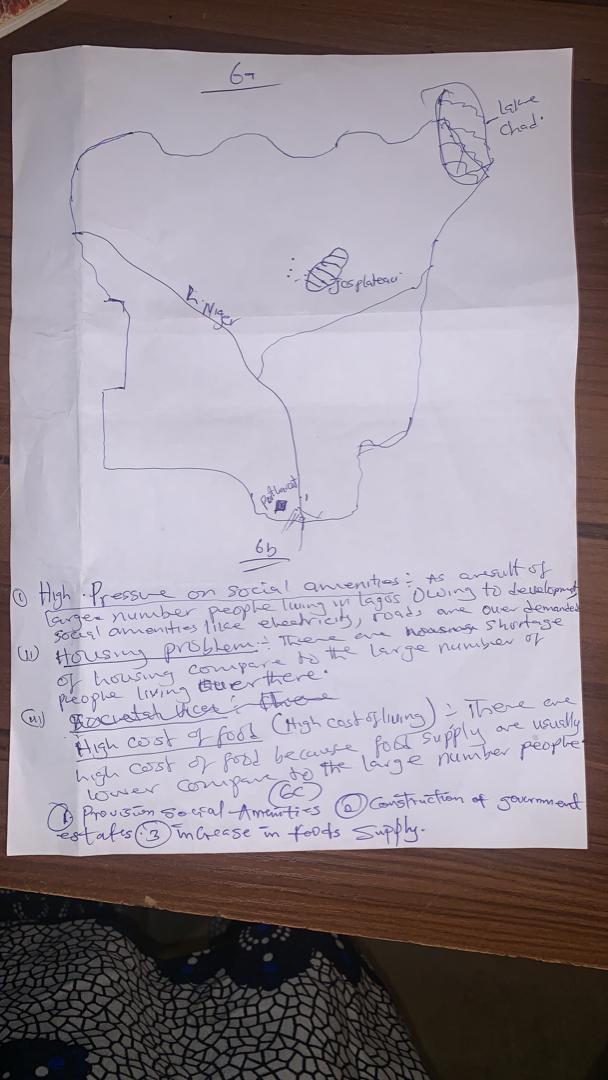 6a
Lake
Chad.
Jos plateau
R. Niger
6b
(i) High Pressure on social amenities:- As a result of
large number people living in lagos owing to development
social amenities like electricity, roads are over demanded
(ii) Housing problem:- There are shortage
of housing compare to the large number of
people living over there.
(iii)
High cost of food (High cost of living):- There are
high cost of food because food supply are usually
lower compare to the large number people
(6c)
(1) Provision Social Amenities (2) Construction of government
estates (3) increase in foods Supply.